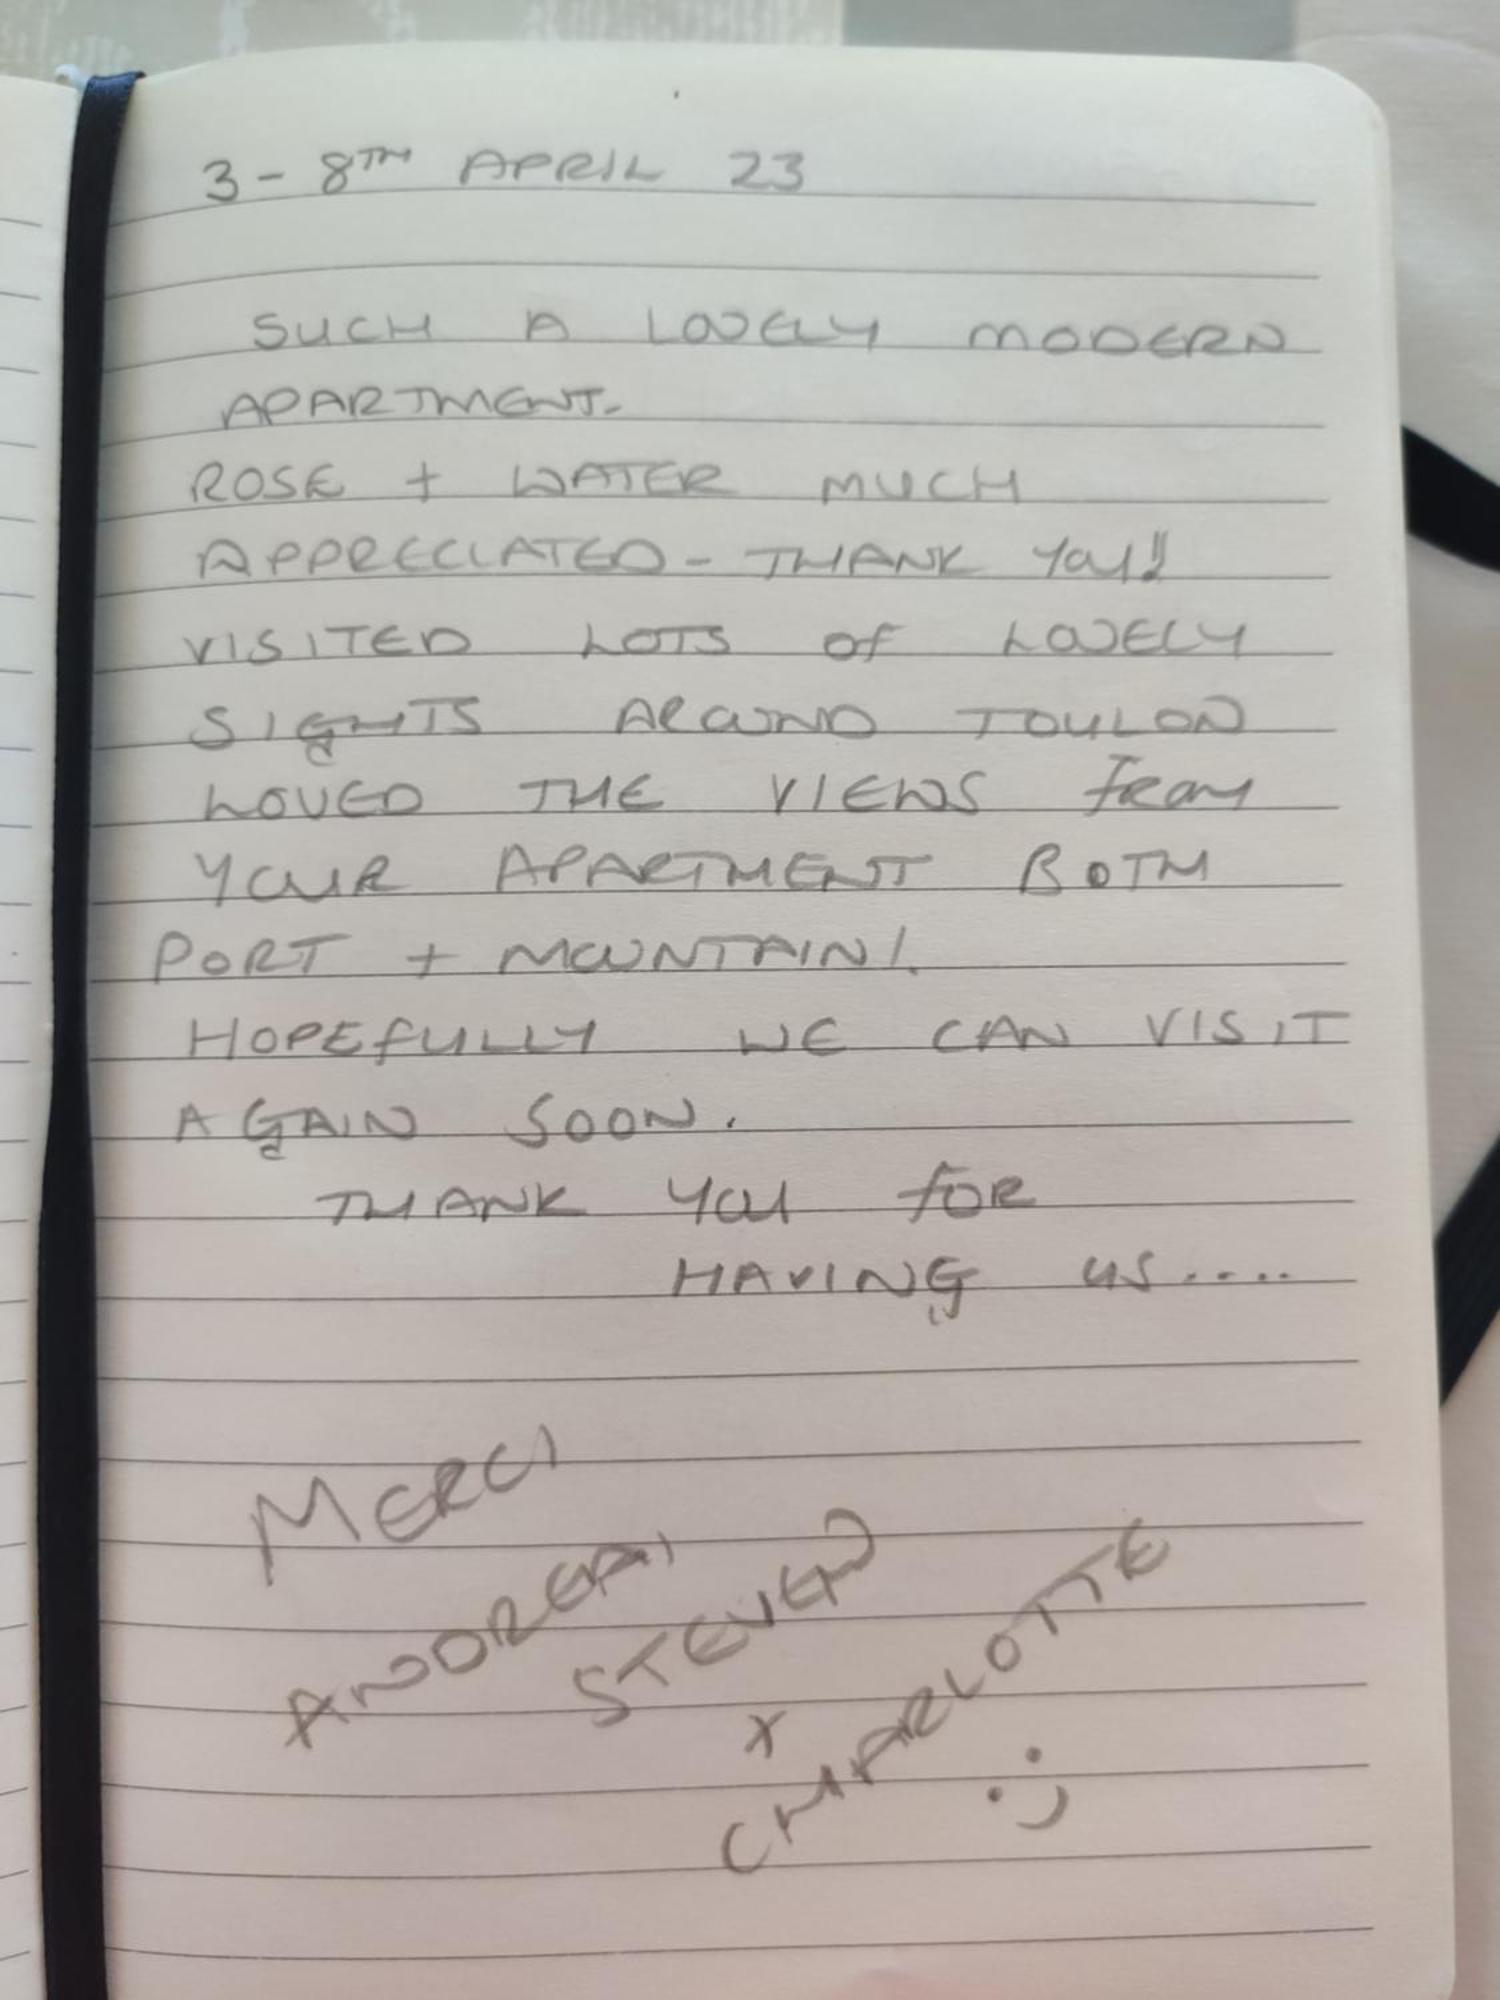 3 - 8TH APRIL 23
SUCH A LOVELY MODERN
APARTMENT.
ROSE + WATER MUCH
APPRECIATED - THANK YOU!!
VISITED LOTS OF LOVELY
SIGHTS AROUND TOULON
LOVED THE VIEWS FROM
YOUR APARTMENT BOTH
PORT + MOUNTAIN!.
HOPEFULLY WE CAN VISIT
AGAIN SOON.
THANK YOU FOR
HAVING US....
MERCI
ANDREA,
STEVEN
x
CHARLOTTE
:)